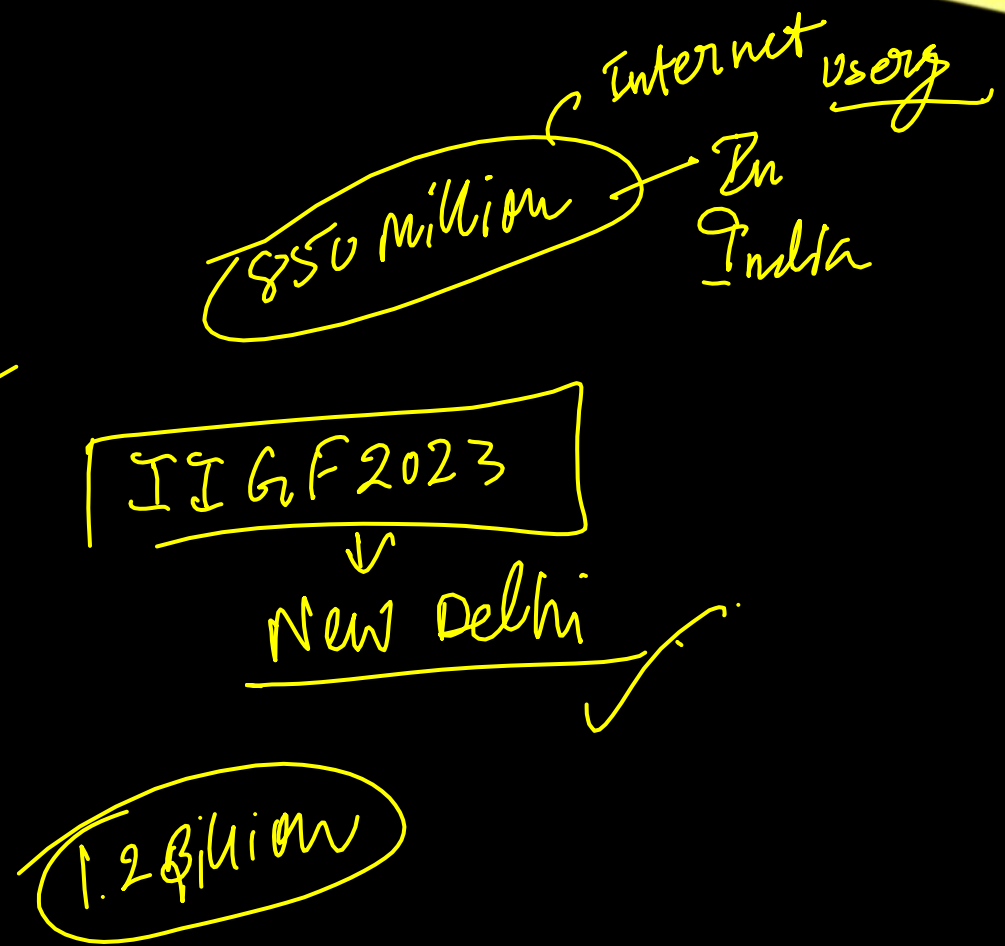 Internet users
850 Million
In
India
IIGF2023
New Delhi
1.2 Billion